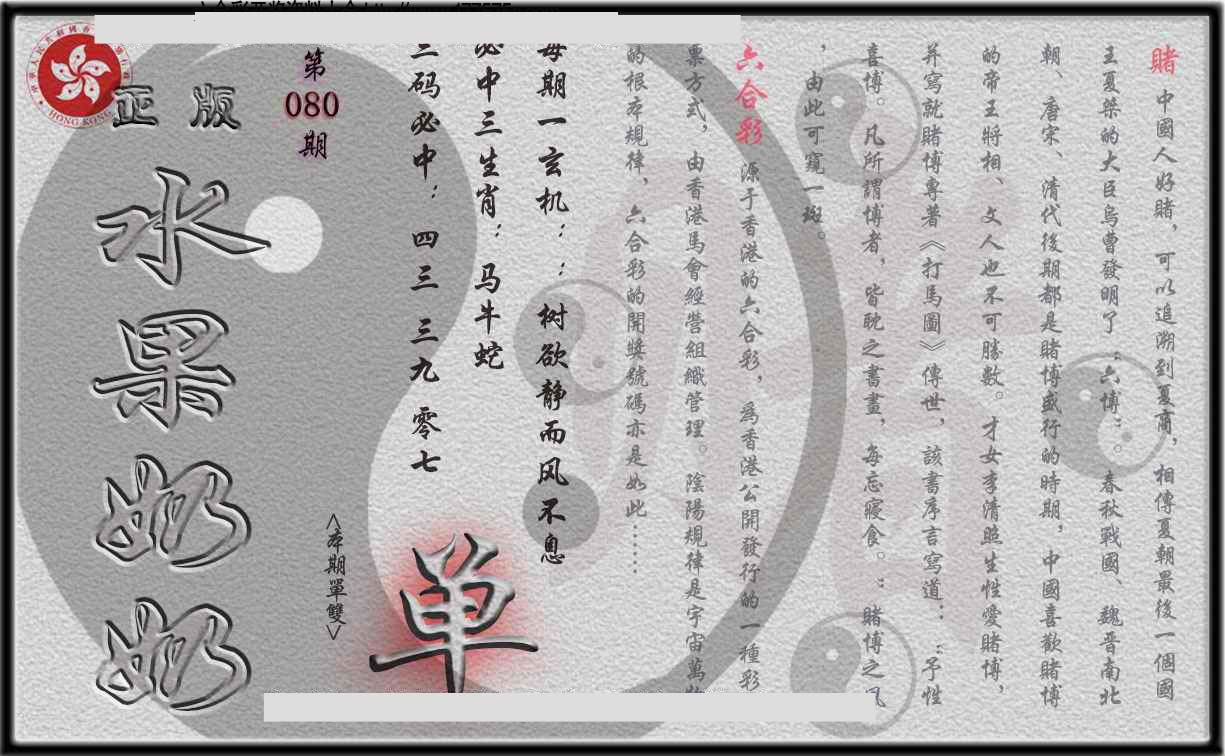 賭 中國人好賭，可以追溯到夏商，相傳夏朝最後一個國
王夏桀的大臣烏曹發明了“六博”。春秋戰國、魏晉南北
朝、唐宋、清代後期都是賭博盛行的時期，中國喜歡賭博
的帝王將相、文人也不可勝數。才女李清照生性愛賭博，
并寫就賭博專著《打馬圖》傳世，該書序言寫道：“予性
喜博。凡所謂博者，皆耽之晝晝，每忘寢食。”賭博之風
，由此可窺一斑。
六合彩 源于香港的六合彩，為香港公開發行的一種彩
票方式，由香港馬會經營組織管理。陰陽規律是宇宙萬物
的根本規律、六合彩的開獎號碼亦是如此……
每期一玄机：：树欲静而风不息
必中三生肖：马牛蛇
三码必中：四三 三九 零七
第080期
<本期單雙>
单
正版
水果奶奶
HONG KONG